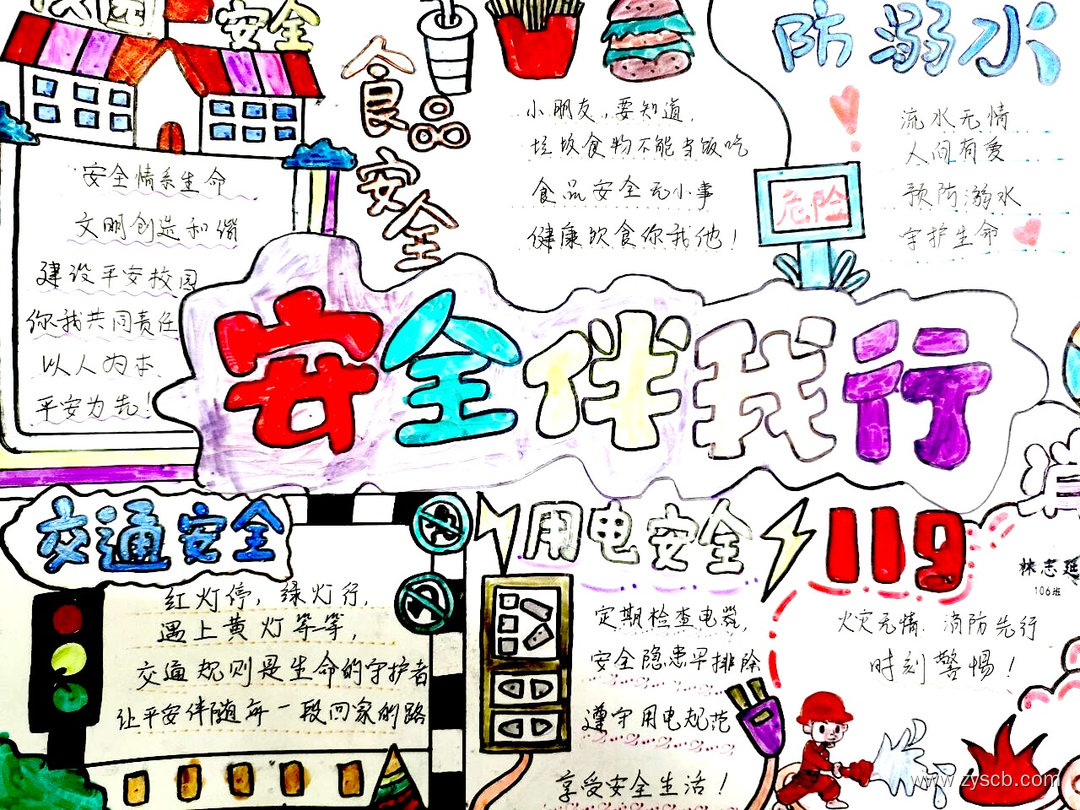 校园
安全
安全情系生命
文明创造和谐
建设平安校园
你我共同责任
以人为本、
平安为先！
食品
安全
小朋友，要知道，
垃圾食物不能当饭吃
食品安全无小事
健康饮食你我他！
防溺水
流水无情
人间有爱
预防溺水
守护生命
危险
安全伴我行
交通安全
红灯停，绿灯行，
遇上黄灯等等，
交通规则是生命的守护者
让平安伴随每一段回家的路
用电安全
定期检查电器，
安全隐患早排除
遵守用电规范
享受安全生活！
消
119
林志延
106班
火灾无情、消防先行
时刻警惕！
www.zyscb.com